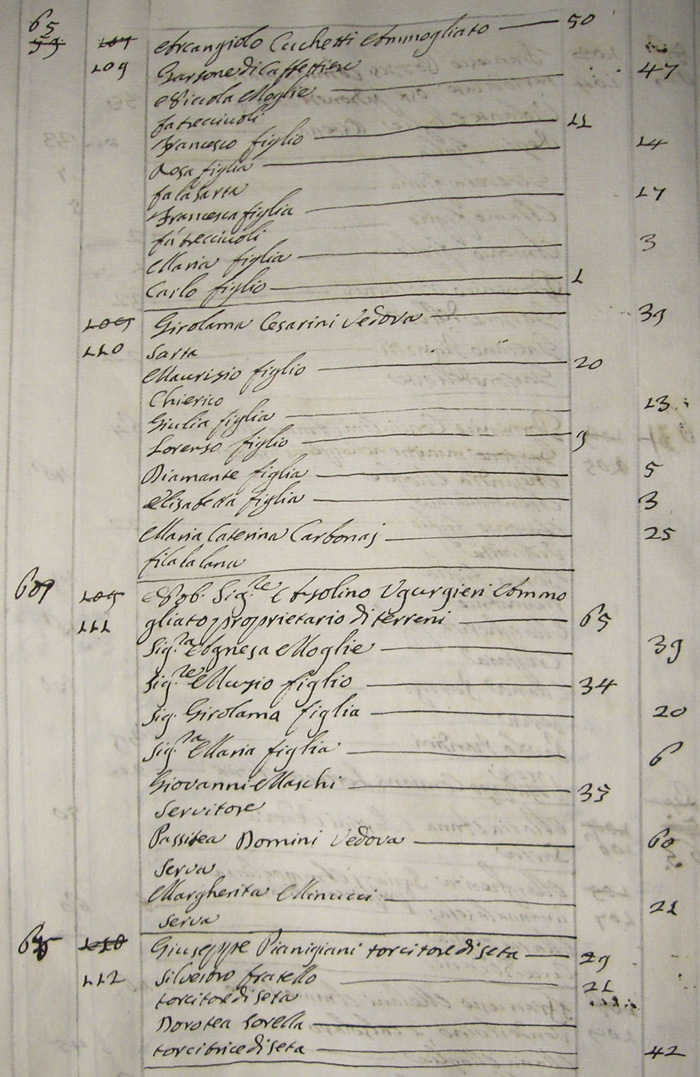 65
59 107 Arcangiolo Cuchetti Ammogliato 50
109 Garsone di Caffettiere 47
Niccola Moglie
fa trecciuoli
Francesco figlio 11
Rosa figlia 14
fa la sarta
Francesca figlia 17
fa trecciuoli
Maria figlia 3
Carlo figlio 1
Girolama Cesarini Vedova 39
110 Sarta
Maurizio figlio 20
Chierico
Giulia figlia 13
Lorenzo figlio 9
Diamante figlia 5
Elisabetta figlia 3
Maria Caterina Carbonaj 25
fila la lana
Nob. Sig.re Ansolino Ugurgieri Ammo
111 gliato, proprietario di terreni 65
Sig.ra Agnesa Moglie 39
Sig.re Muzio figlio 34
Sig. Girolama figlia 20
Sig.ra Maria figlia 6
Giovanni Maschi 35
Servitore
Passitea Domini Vedova 60
Serva
Margherita Minucci 21
Serva
Giuseppe Pianigiani torcitore di seta 29
112 Silvestro fratello 21
torcitore di seta
Dorotea Sorella
torcitrice di seta 42